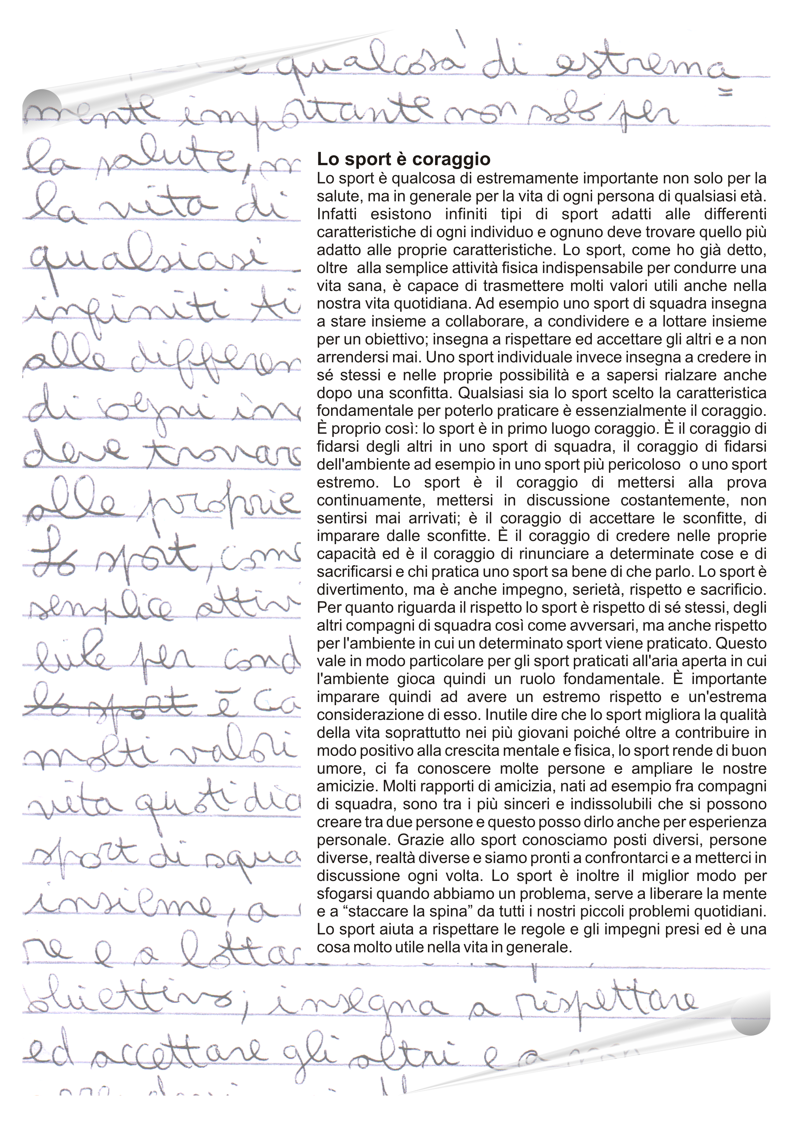 è qualcosa di estrema=
mente importante non solo per
la salute, m
la vita di
qualsiasi
infiniti ti
alle differen
di ogni in
deve trovare
alle proprie
Lo sport, come
semplice attiv
bile per cond
lo sport è ca
molti valori
vita quotidia
sport di squa
insieme, a
re e a lottar
obiettivo; insegna a rispettare
ed accettare gli altri e a non
Lo sport è coraggio
Lo sport è qualcosa di estremamente importante non solo per la
salute, ma in generale per la vita di ogni persona di qualsiasi età.
Infatti esistono infiniti tipi di sport adatti alle differenti
caratteristiche di ogni individuo e ognuno deve trovare quello più
adatto alle proprie caratteristiche. Lo sport, come ho già detto,
oltre alla semplice attività fisica indispensabile per condurre una
vita sana, è capace di trasmettere molti valori utili anche nella
nostra vita quotidiana. Ad esempio uno sport di squadra insegna
a stare insieme a collaborare, a condividere e a lottare insieme
per un obiettivo; insegna a rispettare ed accettare gli altri e a non
arrendersi mai. Uno sport individuale invece insegna a credere in
sé stessi e nelle proprie possibilità e a sapersi rialzare anche
dopo una sconfitta. Qualsiasi sia lo sport scelto la caratteristica
fondamentale per poterlo praticare è essenzialmente il coraggio.
È proprio così: lo sport è in primo luogo coraggio. È il coraggio di
fidarsi degli altri in uno sport di squadra, il coraggio di fidarsi
dell'ambiente ad esempio in uno sport più pericoloso o uno sport
estremo. Lo sport è il coraggio di mettersi alla prova
continuamente, mettersi in discussione costantemente, non
sentirsi mai arrivati; è il coraggio di accettare le sconfitte, di
imparare dalle sconfitte. È il coraggio di credere nelle proprie
capacità ed è il coraggio di rinunciare a determinate cose e di
sacrificarsi e chi pratica uno sport sa bene di che parlo. Lo sport è
divertimento, ma è anche impegno, serietà, rispetto e sacrificio.
Per quanto riguarda il rispetto lo sport è rispetto di sé stessi, degli
altri compagni di squadra così come avversari, ma anche rispetto
per l'ambiente in cui un determinato sport viene praticato. Questo
vale in modo particolare per gli sport praticati all'aria aperta in cui
l'ambiente gioca quindi un ruolo fondamentale. È importante
imparare quindi ad avere un estremo rispetto e un'estrema
considerazione di esso. Inutile dire che lo sport migliora la qualità
della vita soprattutto nei più giovani poiché oltre a contribuire in
modo positivo alla crescita mentale e fisica, lo sport rende di buon
umore, ci fa conoscere molte persone e ampliare le nostre
amicizie. Molti rapporti di amicizia, nati ad esempio fra compagni
di squadra, sono tra i più sinceri e indissolubili che si possono
creare tra due persone e questo posso dirlo anche per esperienza
personale. Grazie allo sport conosciamo posti diversi, persone
diverse, realtà diverse e siamo pronti a confrontarci e a metterci in
discussione ogni volta. Lo sport è inoltre il miglior modo per
sfogarsi quando abbiamo un problema, serve a liberare la mente
e a “staccare la spina” da tutti i nostri piccoli problemi quotidiani.
Lo sport aiuta a rispettare le regole e gli impegni presi ed è una
cosa molto utile nella vita in generale.